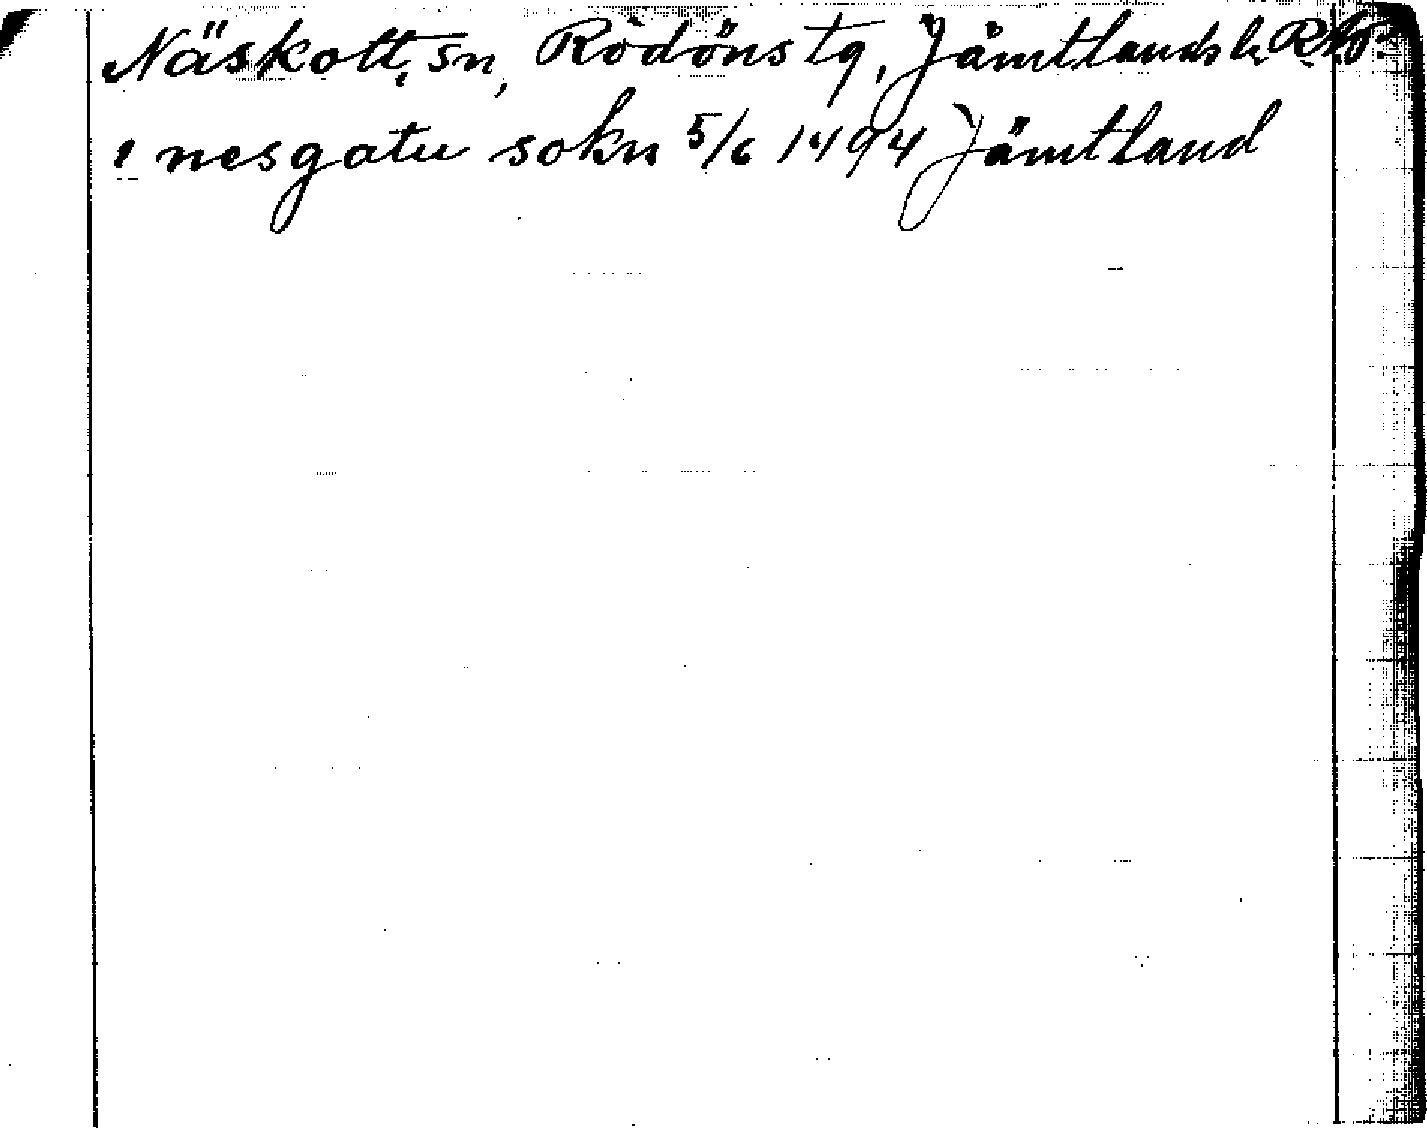 Näskott, sn, Rödöns tg, Jämtlands l.
i nesgatu sokn 5/6 1494 Jämtland